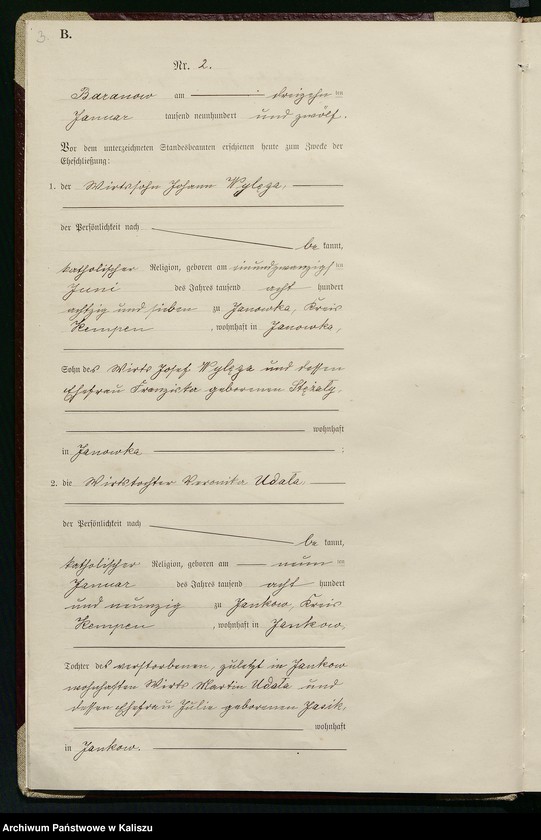 3.
B.
Nr. 2.
Baranow am dreizehn ten
Januar tausend neunhundert und zwölf.
Vor dem unterzeichneten Standesbeamten erschienen heute zum Zwecke der
Eheschließung:
1. der Wirtssohn Johann Wylęga,
der Persönlichkeit nach
be kannt,
katholischer Religion, geboren am einundzwanzigsten
Juni des Jahres tausend acht hundert
achtzig und sieben zu Janowka, Kreis
Kempen, wohnhaft in Janowka,
Sohn des Wirts Josef Wylęga und dessen
Ehefrau Franziska geborenen Stęzały,
wohnhaft
in Janowka :
2. die Wirtstochter Veronika Udała
der Persönlichkeit nach
be kannt,
katholischer Religion, geboren am neun ten
Januar des Jahres tausend acht hundert
und neunzig zu Jankow, Kreis
Kempen, wohnhaft in Jankow,
Tochter des verstorbenen, zuletzt in Jankow
wohnhaften Wirts Martin Udała und
dessen Ehefrau Julie geborenen Jasik,
wohnhaft
in Jankow.
Archiwum Państwowe w Kaliszu